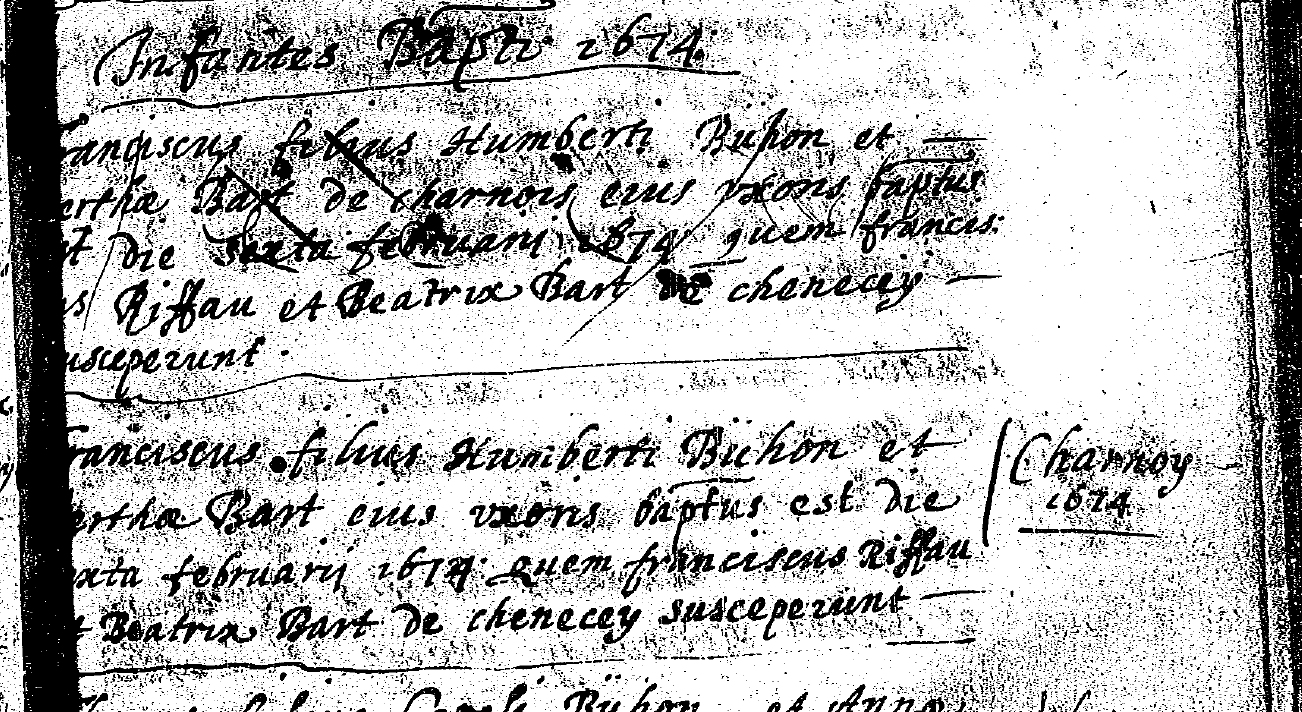 Infantes Bapti 1674.
franciscus filius Humberti Buhon et
erthæ Bart de charnois eius uxoris baptus
st die sexta februarij 1674 quem francis:
us Riffau et Beatrix Bart de chenecey
usceperunt.
franciscus filius Humberti Bühon et
erthæ Bart eius uxoris baptus est die
Charnoy
1674
exta februarij 1674. quem franciscus Riffau
t Beatrix Bart de chenecey susceperunt
Bühon et Anna